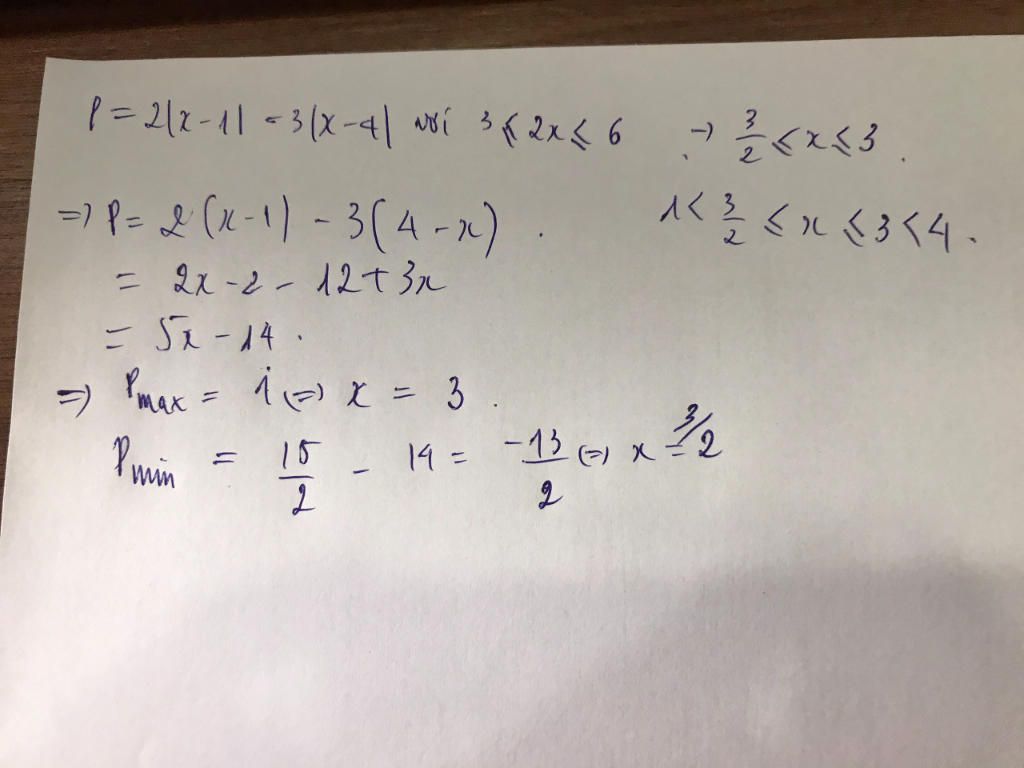 P = 2|x-1| - 3|x-4| với 3 ≤ 2x ≤ 6 → 3/2 ≤ x ≤ 3.
⇒ P = 2(x-1) - 3(4-x). 1 < 3/2 ≤ x ≤ 3 < 4.
= 2x - 2 - 12 + 3x
= 5x - 14.
⇒ Pmax = 1 ⇔ x = 3.
Pmin = 15/2 - 14 = -13/2 ⇔ x = 3/2